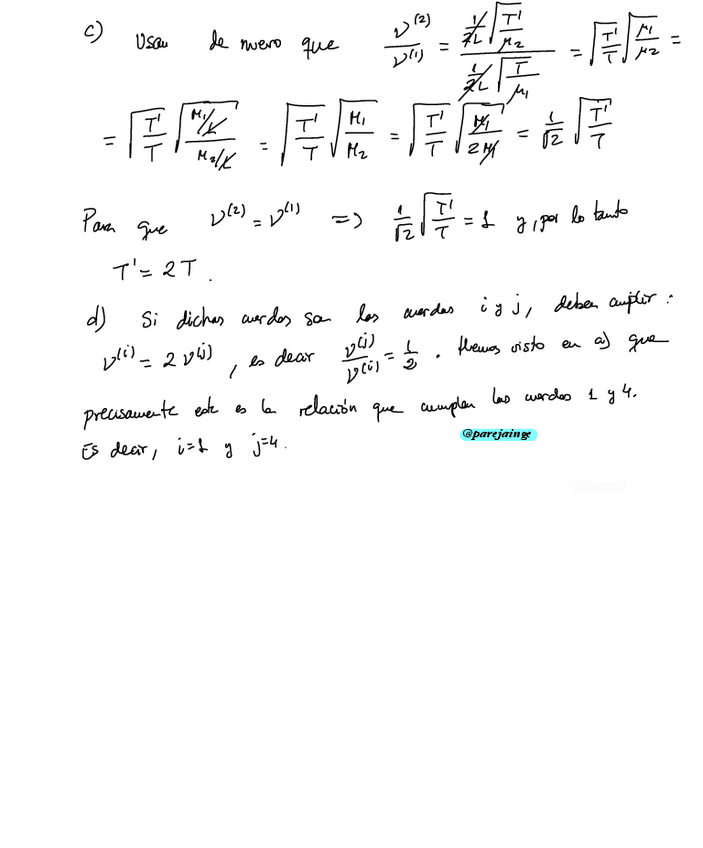 c) Usan de nuevo que ν^(2)/ν^(1) = (1/2L √(T'/μ₂))/(1/2L √(T/μ₁)) = √(T'/T) √(μ₁/μ₂) =
= √(T'/T) √((M₁/L)/(M₂/L)) = √(T'/T) √(M₁/M₂) = √(T'/T) √(M₁/2M₁) = 1/√2 √(T'/T)
Para que ν^(2) = ν^(1) => 1/√2 √(T'/T) = 1 y, por lo tanto
T' = 2T.
d) Si dichas cuerdas son las cuerdas i y j, deben cumplir:
ν^(i) = 2 ν^(j), es decir ν^(j)/ν^(i) = 1/2. Hemos visto en a) que
precisamente esta es la relación que cumplen las cuerdas 1 y 4.
Es decir, i=1 y j=4.
@parejainge